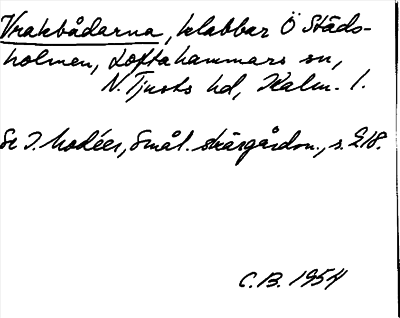 Vrakbådarna, klabbar Ö Städs-
holmen, Loftahammars sn,
N. Tjusts hd, Kalm. l.
Se I. Modéer, Smål. skärgårdsn., s. 218.
C.B. 1954